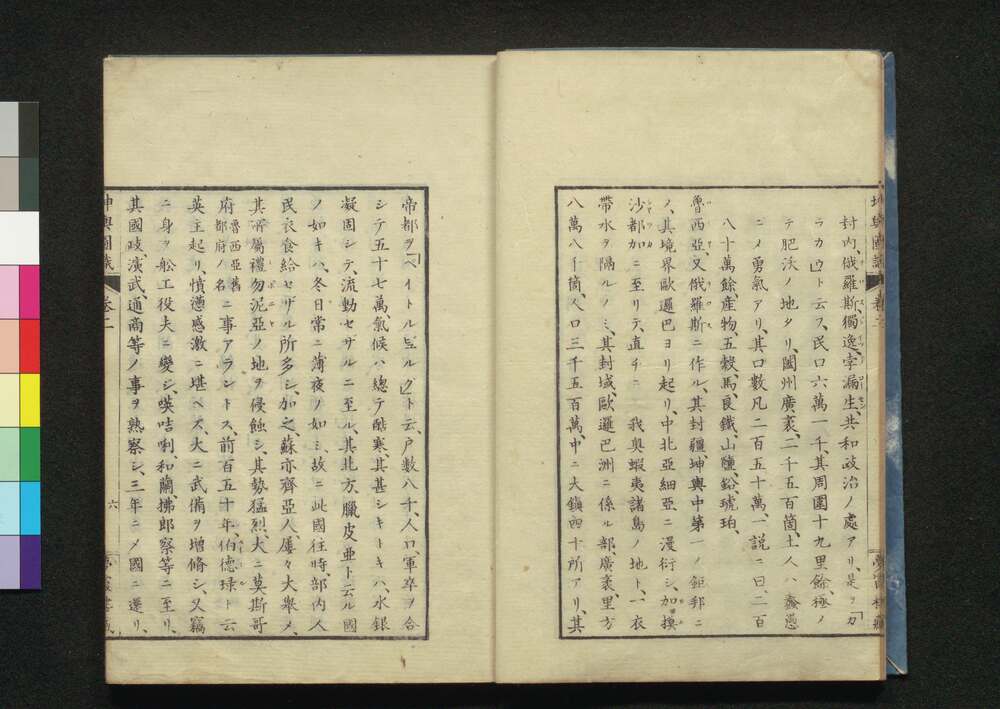 坤輿圖識
封内、俄羅斯、獨逸、孛漏生、共和政治ノ處アリ、是ヲ「カ
ラカウ」ト云フ、民口六萬一千、其周圍十九里餘、極メ
テ肥沃ノ地タリ、闔州廣袤、二千五百箇、土人ハ蠢愚
ニメ勇氣アリ、其口數凡二百五十萬、一説ニ曰、二百
八十萬餘、産物、五穀、馬、良鐵、山鹽、鉛、琥珀、
魯西亞、又俄羅斯ニ作ル、其封疆、坤輿中第一ノ鉅邦ニ
ノ、其境界歐邏巴ヨリ起リ、中北亞細亞ニ漫衍シ、加摸
沙都加ニ至リテ、直チニ 我奥蝦夷諸島ノ地ト、一衣
帶水ヲ隔ルノミ、其封域、歐邏巴洲ニ係ル部、廣袤里方
八萬八千箇、人口三千五百萬、中ニ大鎮四十所アリ、其
帝都ヲ「ペイトルビュルク」ト云、戸數八千、人口軍卒ヲ合
シテ五十七萬、氣候ハ總テ酷寒、其甚シキトキハ、水銀
凝固シテ、流動セザルニ至ル、其北方、臘皮亜ト云ル國
ノ如キハ、冬日常ニ薄夜ノ如ミ、故ニ此國往時部内人
民衣食給セザル所多シ、加之、蘇亦齊亞人、屢々大舉メ、
其所屬禮勿泥亞ノ地ヲ侵蝕シ、其勢猛烈、大ニ莫斯哥
府魯西亞舊都府ノ名ニ事アラントス、前百五十年、伯德琭ト云
英主起リ、憤懣感激ニ堪ヘズ、大ニ武備ヲ增脩シ、又竊
ニ身ヲ舩工役夫ニ變シ、暎咭唎、和蘭、拂郎察等ニ至リ、
其國政、演武、通商等ノ事ヲ熟察シ、三年ニメ國ニ還リ、
坤輿圖識 卷二 六